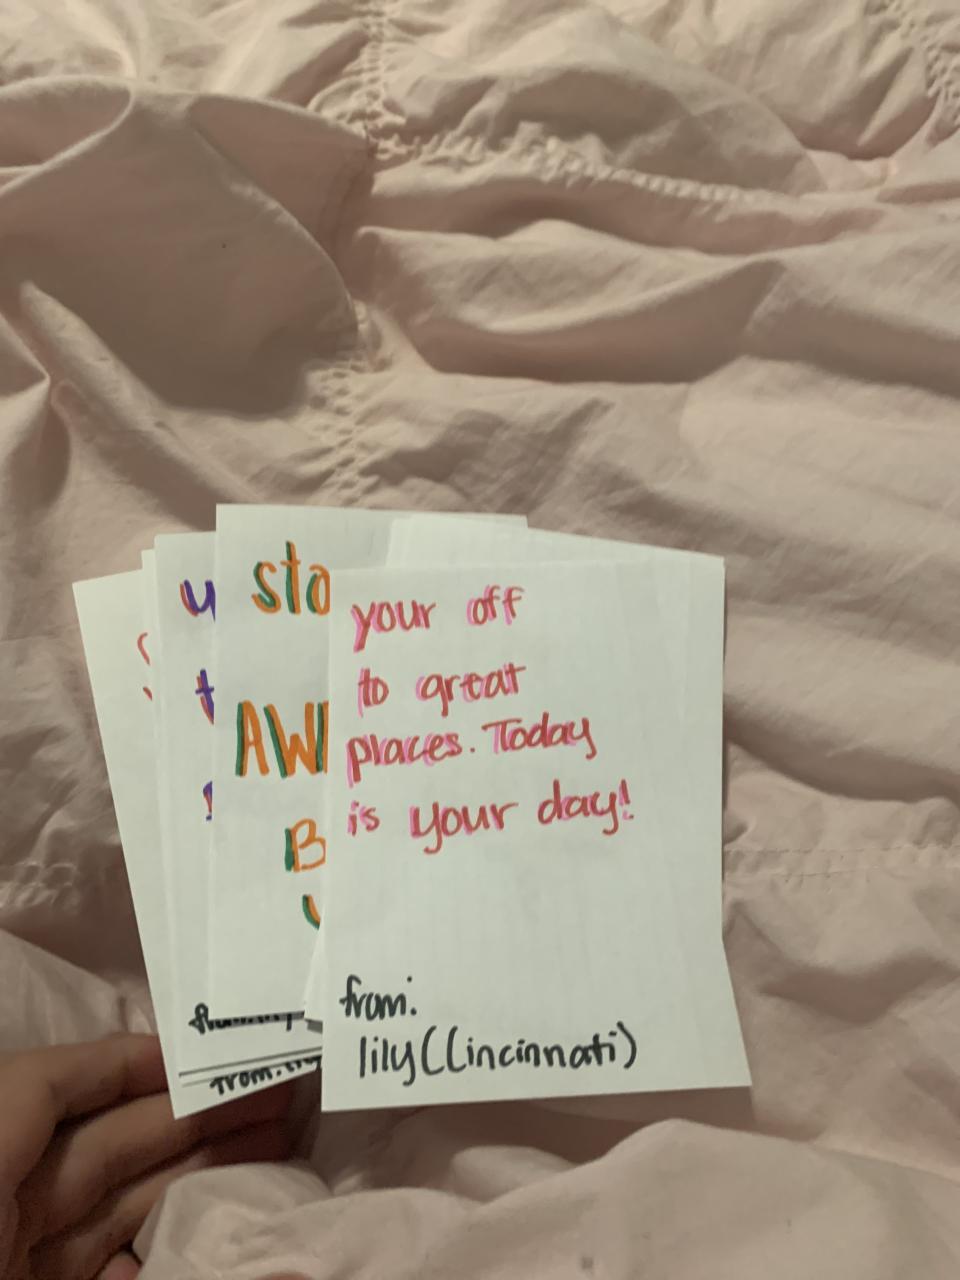 your off
to great
places. Today
is your day!
from:
lily (Cincinnati)
sto
AW
B
u
t
from: lily